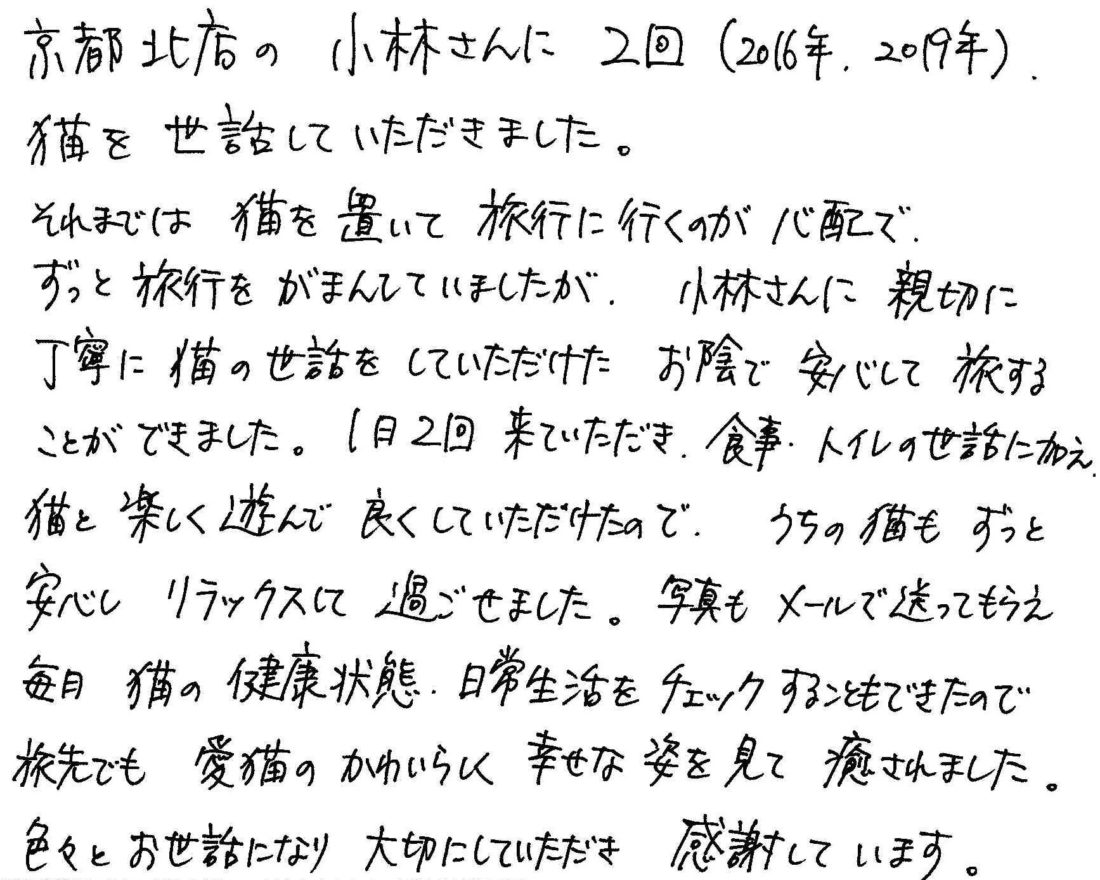 京都北店の 小林さんに 2回 (2016年、2019年)、
猫を 世話して いただきました。
それまでは 猫を 置いて 旅行に行くのが 心配で、
ずっと 旅行を がまんしていましたが、 小林さんに 親切に
丁寧に 猫の世話を していただけた お陰で 安心して 旅する
ことが できました。1日2回 来ていただき、食事・トイレの世話に加え、
猫と 楽しく遊んで 良くしていただけたので、 うちの猫も ずっと
安心し リラックスして 過ごせました。写真も メールで送ってもらえ
毎日 猫の 健康状態・日常生活を チェックすることもできたので
旅先でも 愛猫の かわいらしく 幸せな 姿を見て 癒されました。
色々と お世話になり 大切にしていただき 感謝しています。